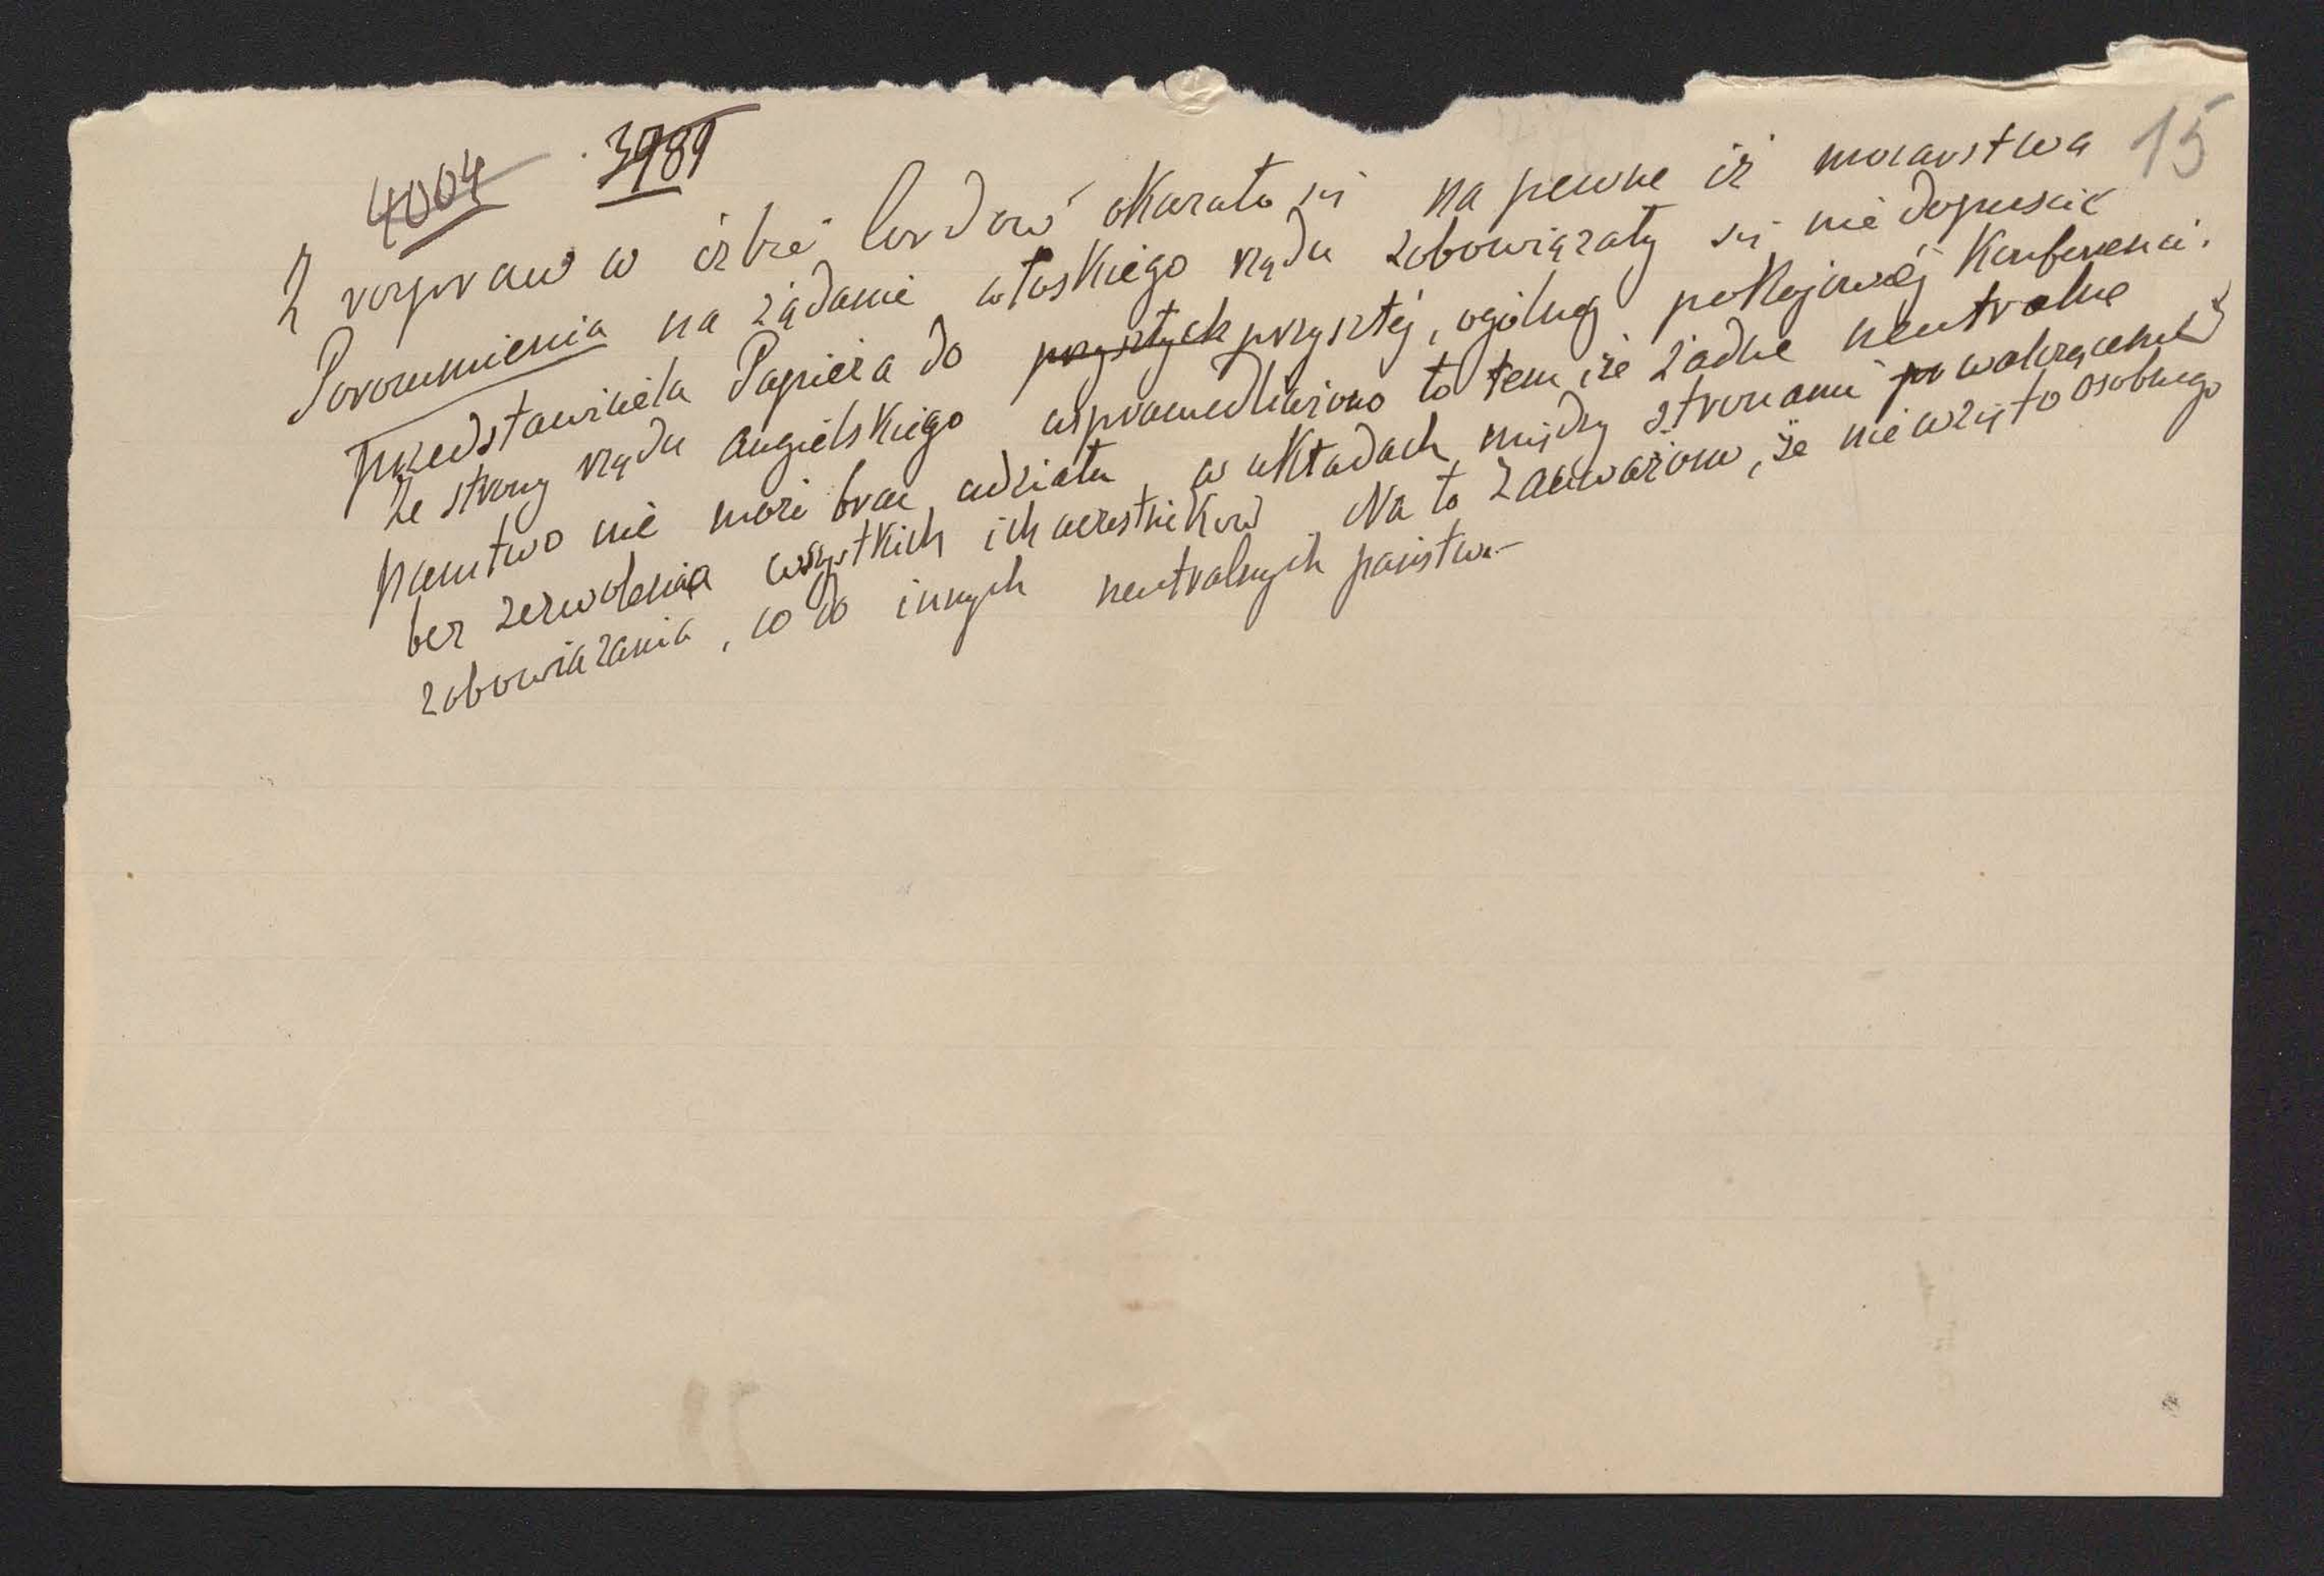 4004 3989
15
Z rozpraw w izbie lordów okazało się na pewne iż mocarstwa
Porozumienia na żądanie włoskiego rządu zobowiązały się nie dopuścić
przedstawiciela Papieża do przyszłych przyszłej, ogólnej pokojowej Konferencji.
Ze strony rządu angielskiego usprawiedliwiono to tem, że żadne neutralne
państwo nie może brać udziału w układach między stronami po walczącemi
bez zezwolenia wszystkich ich uczestników Na to zauważono, że nie wzięto osobnego
zobowiązania, co do innych neutralnych państw.–